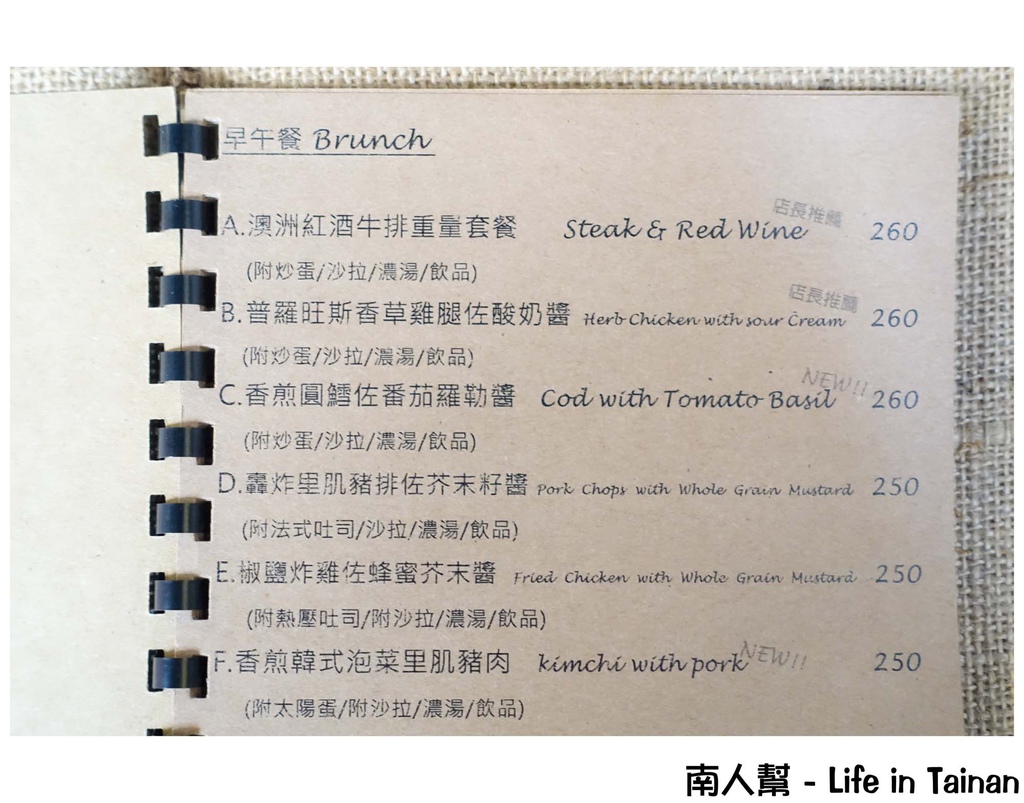 早午餐 Brunch
店長推薦
A.澳洲紅酒牛排重量套餐 Steak & Red Wine 260
(附炒蛋/沙拉/濃湯/飲品)
店長推薦
B.普羅旺斯香草雞腿佐酸奶醬 Herb Chicken with sour Cream 260
(附炒蛋/沙拉/濃湯/飲品)
NEW!!
C.香煎圓鱈佐番茄羅勒醬 Cod with Tomato Basil 260
(附炒蛋/沙拉/濃湯/飲品)
D.轟炸里肌豬排佐芥末籽醬 Pork Chops with Whole Grain Mustard 250
(附法式吐司/沙拉/濃湯/飲品)
E.椒鹽炸雞佐蜂蜜芥末醬 Fried Chicken with Whole Grain Mustard 250
(附熱壓吐司/附沙拉/濃湯/飲品)
F.香煎韓式泡菜里肌豬肉 kimchi with pork NEW!! 250
(附太陽蛋/附沙拉/濃湯/飲品)
南人幫 - Life in Tainan